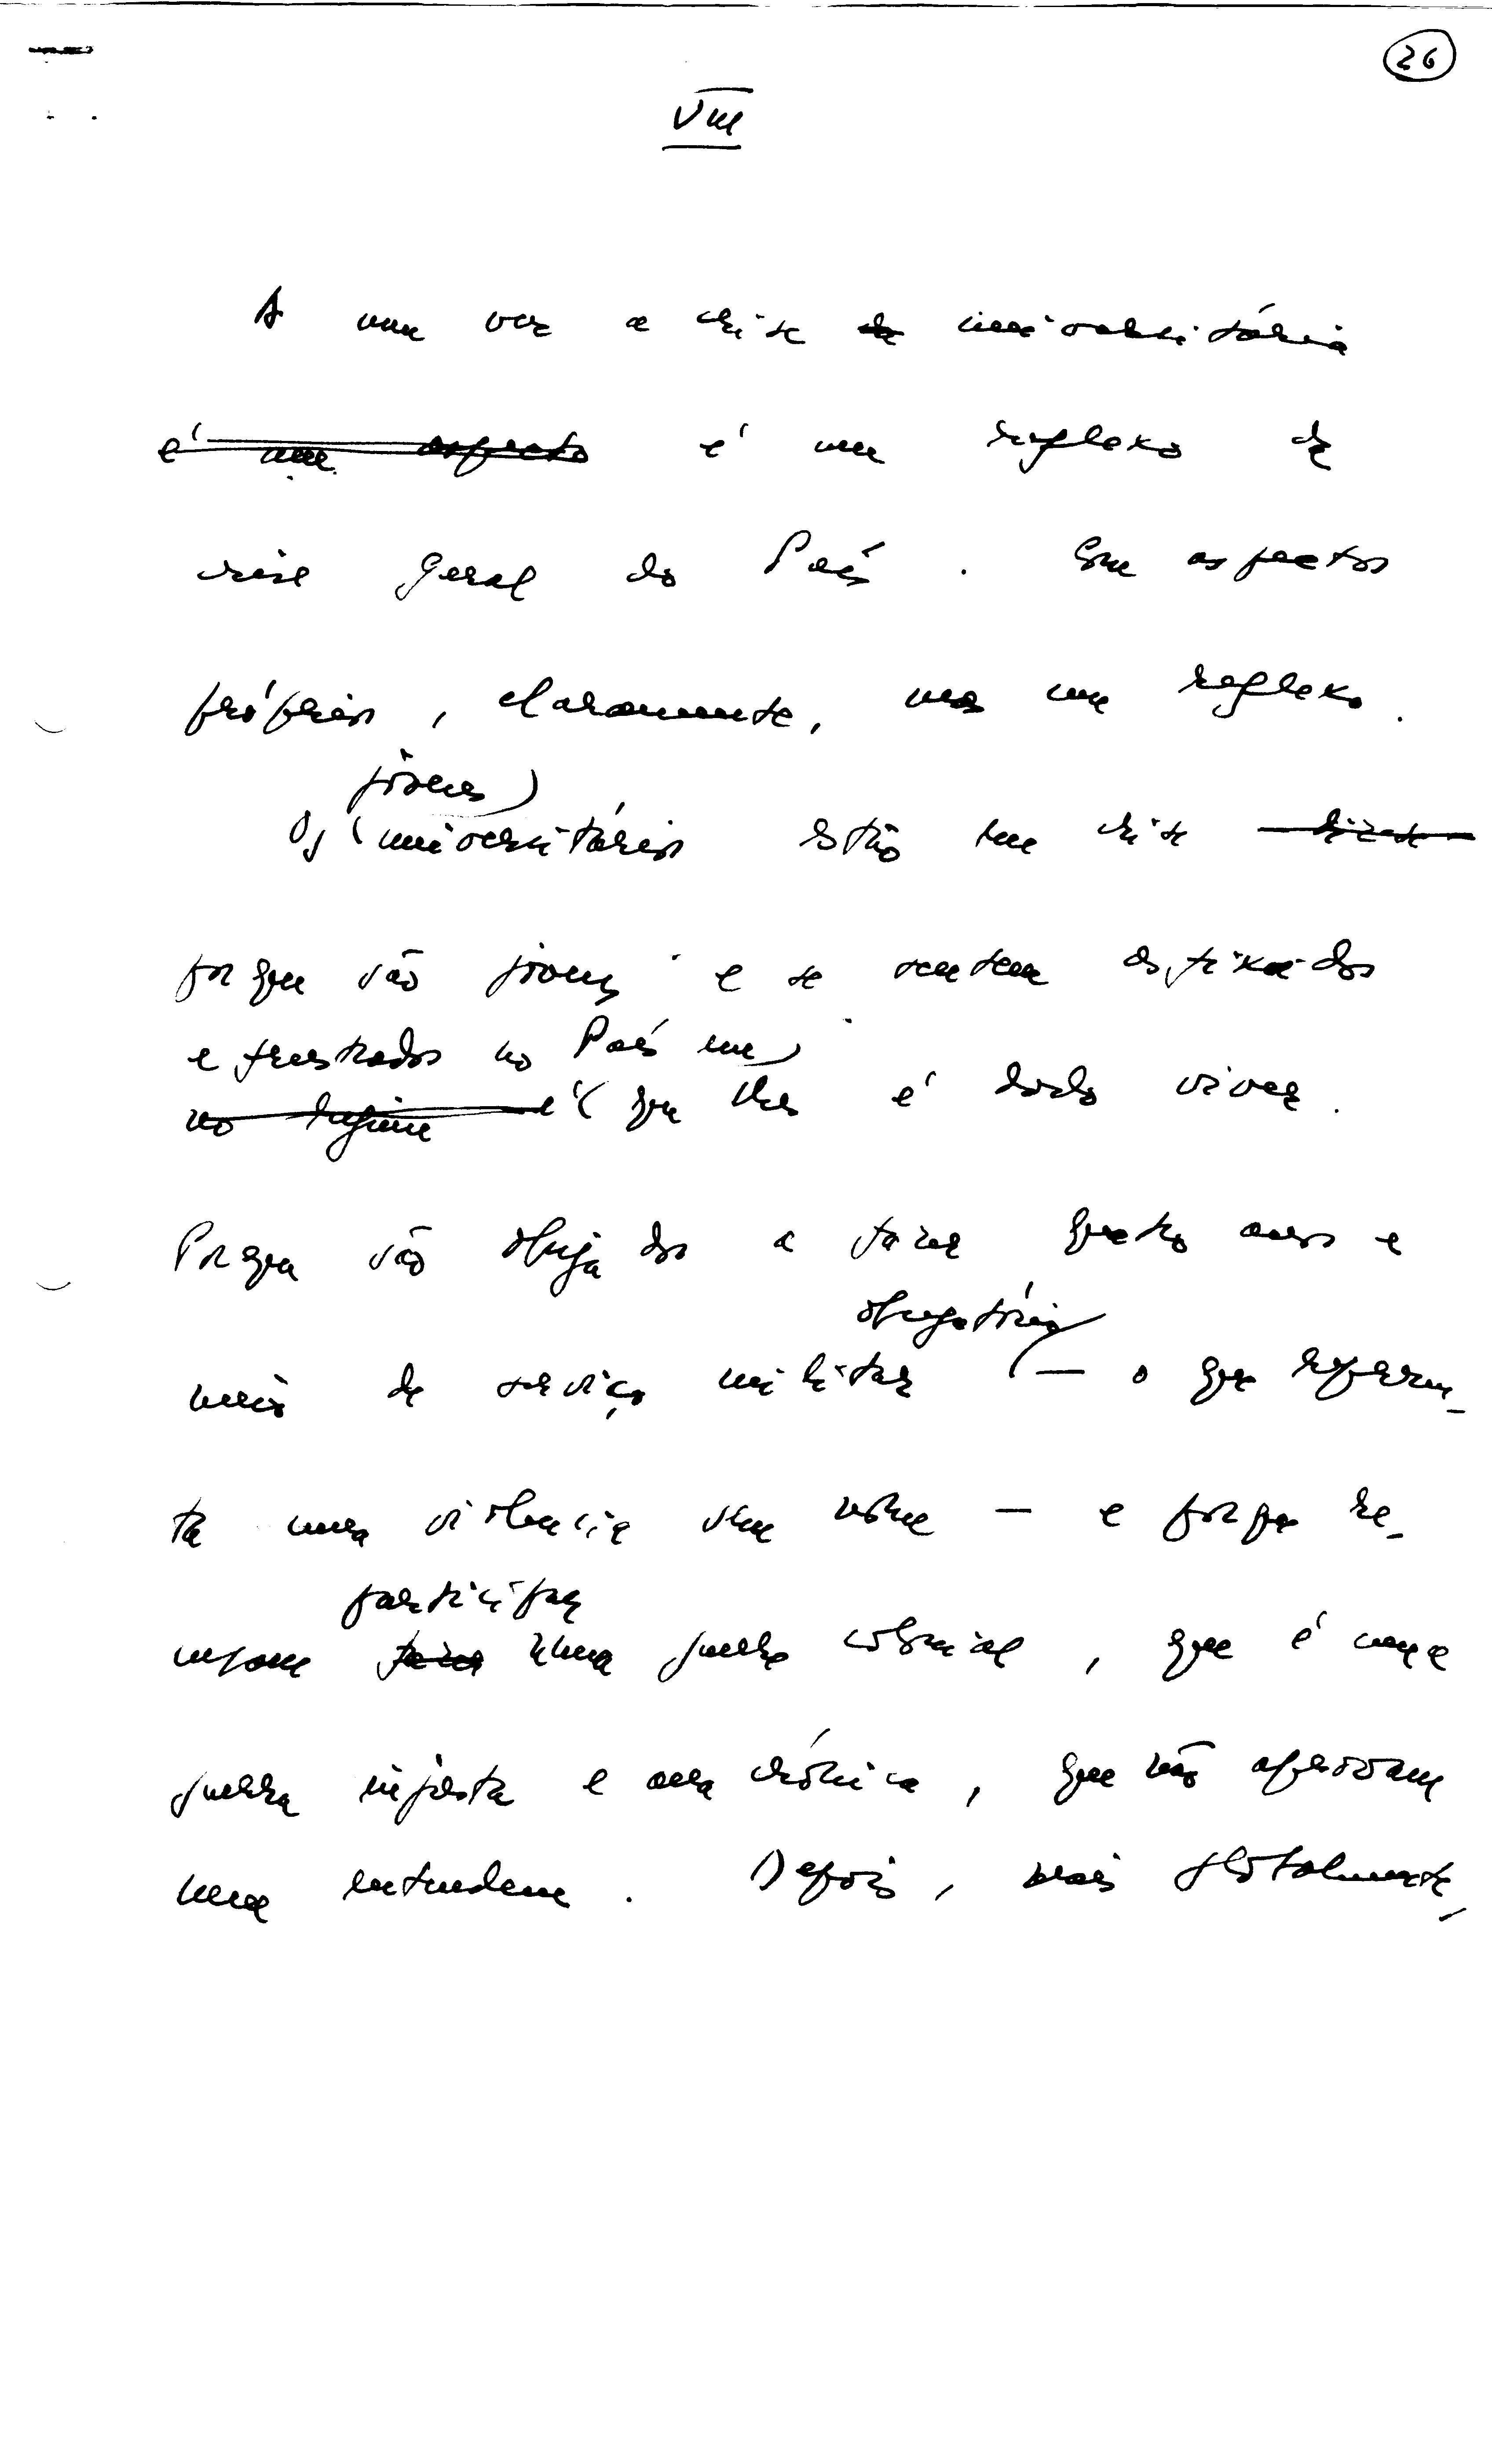 26
VIII
A meu ver a crise de universitária
é um aspecto é um reflexo da
crise geral do País. Com aspectos
próprios, claramente, mas um reflexo.
jovens
Os universitários estão em crise
porque são jovens e se sentem asfixiados
e frustrados no País em
no regime é que lhes é dado viver.
Porque são obrigados a fazer quatro anos e
obrigatório
mais de serviço militar — o que represen-
ta uma violência sem nome — e porque re-
participar
cusam fazer numa guerra colonial, que é uma
guerra injusta e anacrónica, que não aprovam
nem entendem. Depois, mais globalmente,